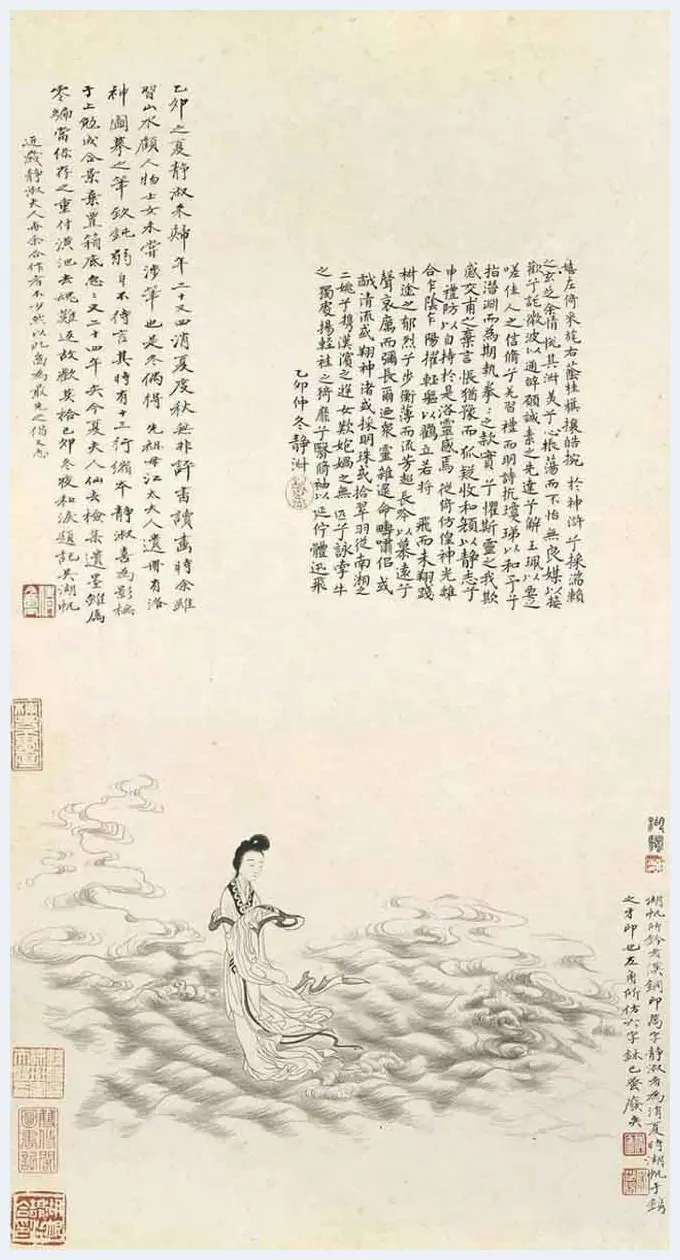 嬉左倚采旄右蔭桂旗攘皓捥於神滸兮採湍瀨
之玄芝余情悅其淑美兮心振蕩而不怡無良媒以接
歡兮託微波以通辭願誠素之先達兮解玉珮以要之
嗟佳人之信脩兮羌習禮而明詩抗瓊珶以和予兮
指潛淵而為期執拳々之款實兮懼斯靈之我欺
感交甫之棄言悵猶豫而狐疑收和顏以静志兮
申禮防以自持於是洛靈感焉徙倚仿偟神光離
合乍陰乍陽擢輕軀以鶴立若將飛而未翔踐
椒塗之郁烈兮步衡薄而流芳超長吟以慕遠兮
聲哀厲而彌長爾迺衆靈雜遝命疇嘯侶或
戲清流或翔神渚或採明珠或拾翠羽從南湘之
二姚兮攜漢濱之遊女歎匏媧之無匹兮詠牽牛
之獨處揚輕袿之猗靡兮翳脩袖以延佇體迅飛
乙卯仲冬静淑
乙卯之夏静淑来歸年二十又四消夏度秋無非評書讀畫時余雖
習山水顧人物士女未嘗涉筆也是冬偶得先祖母江太夫人遺冊有洛
神圖摹之筆致鈍弱自不待言其時有十三行縮本静淑喜為影橅
于上勉成合景棄置箱底忽々又二十四年矣今夏夫人仙去檢集遺墨雖屬
零編當保存之重付潢池去魄難返故歡莫拾己卯冬夜和淚題記吳湖帆
近歲静淑夫人與余合作者不少然以此為最先之偶又志
湖帆所鈐者漢銅印萬字静淑者為消夏時湖帆手鐫
之牙印也左角所仿六字鉥已蚤廢矣